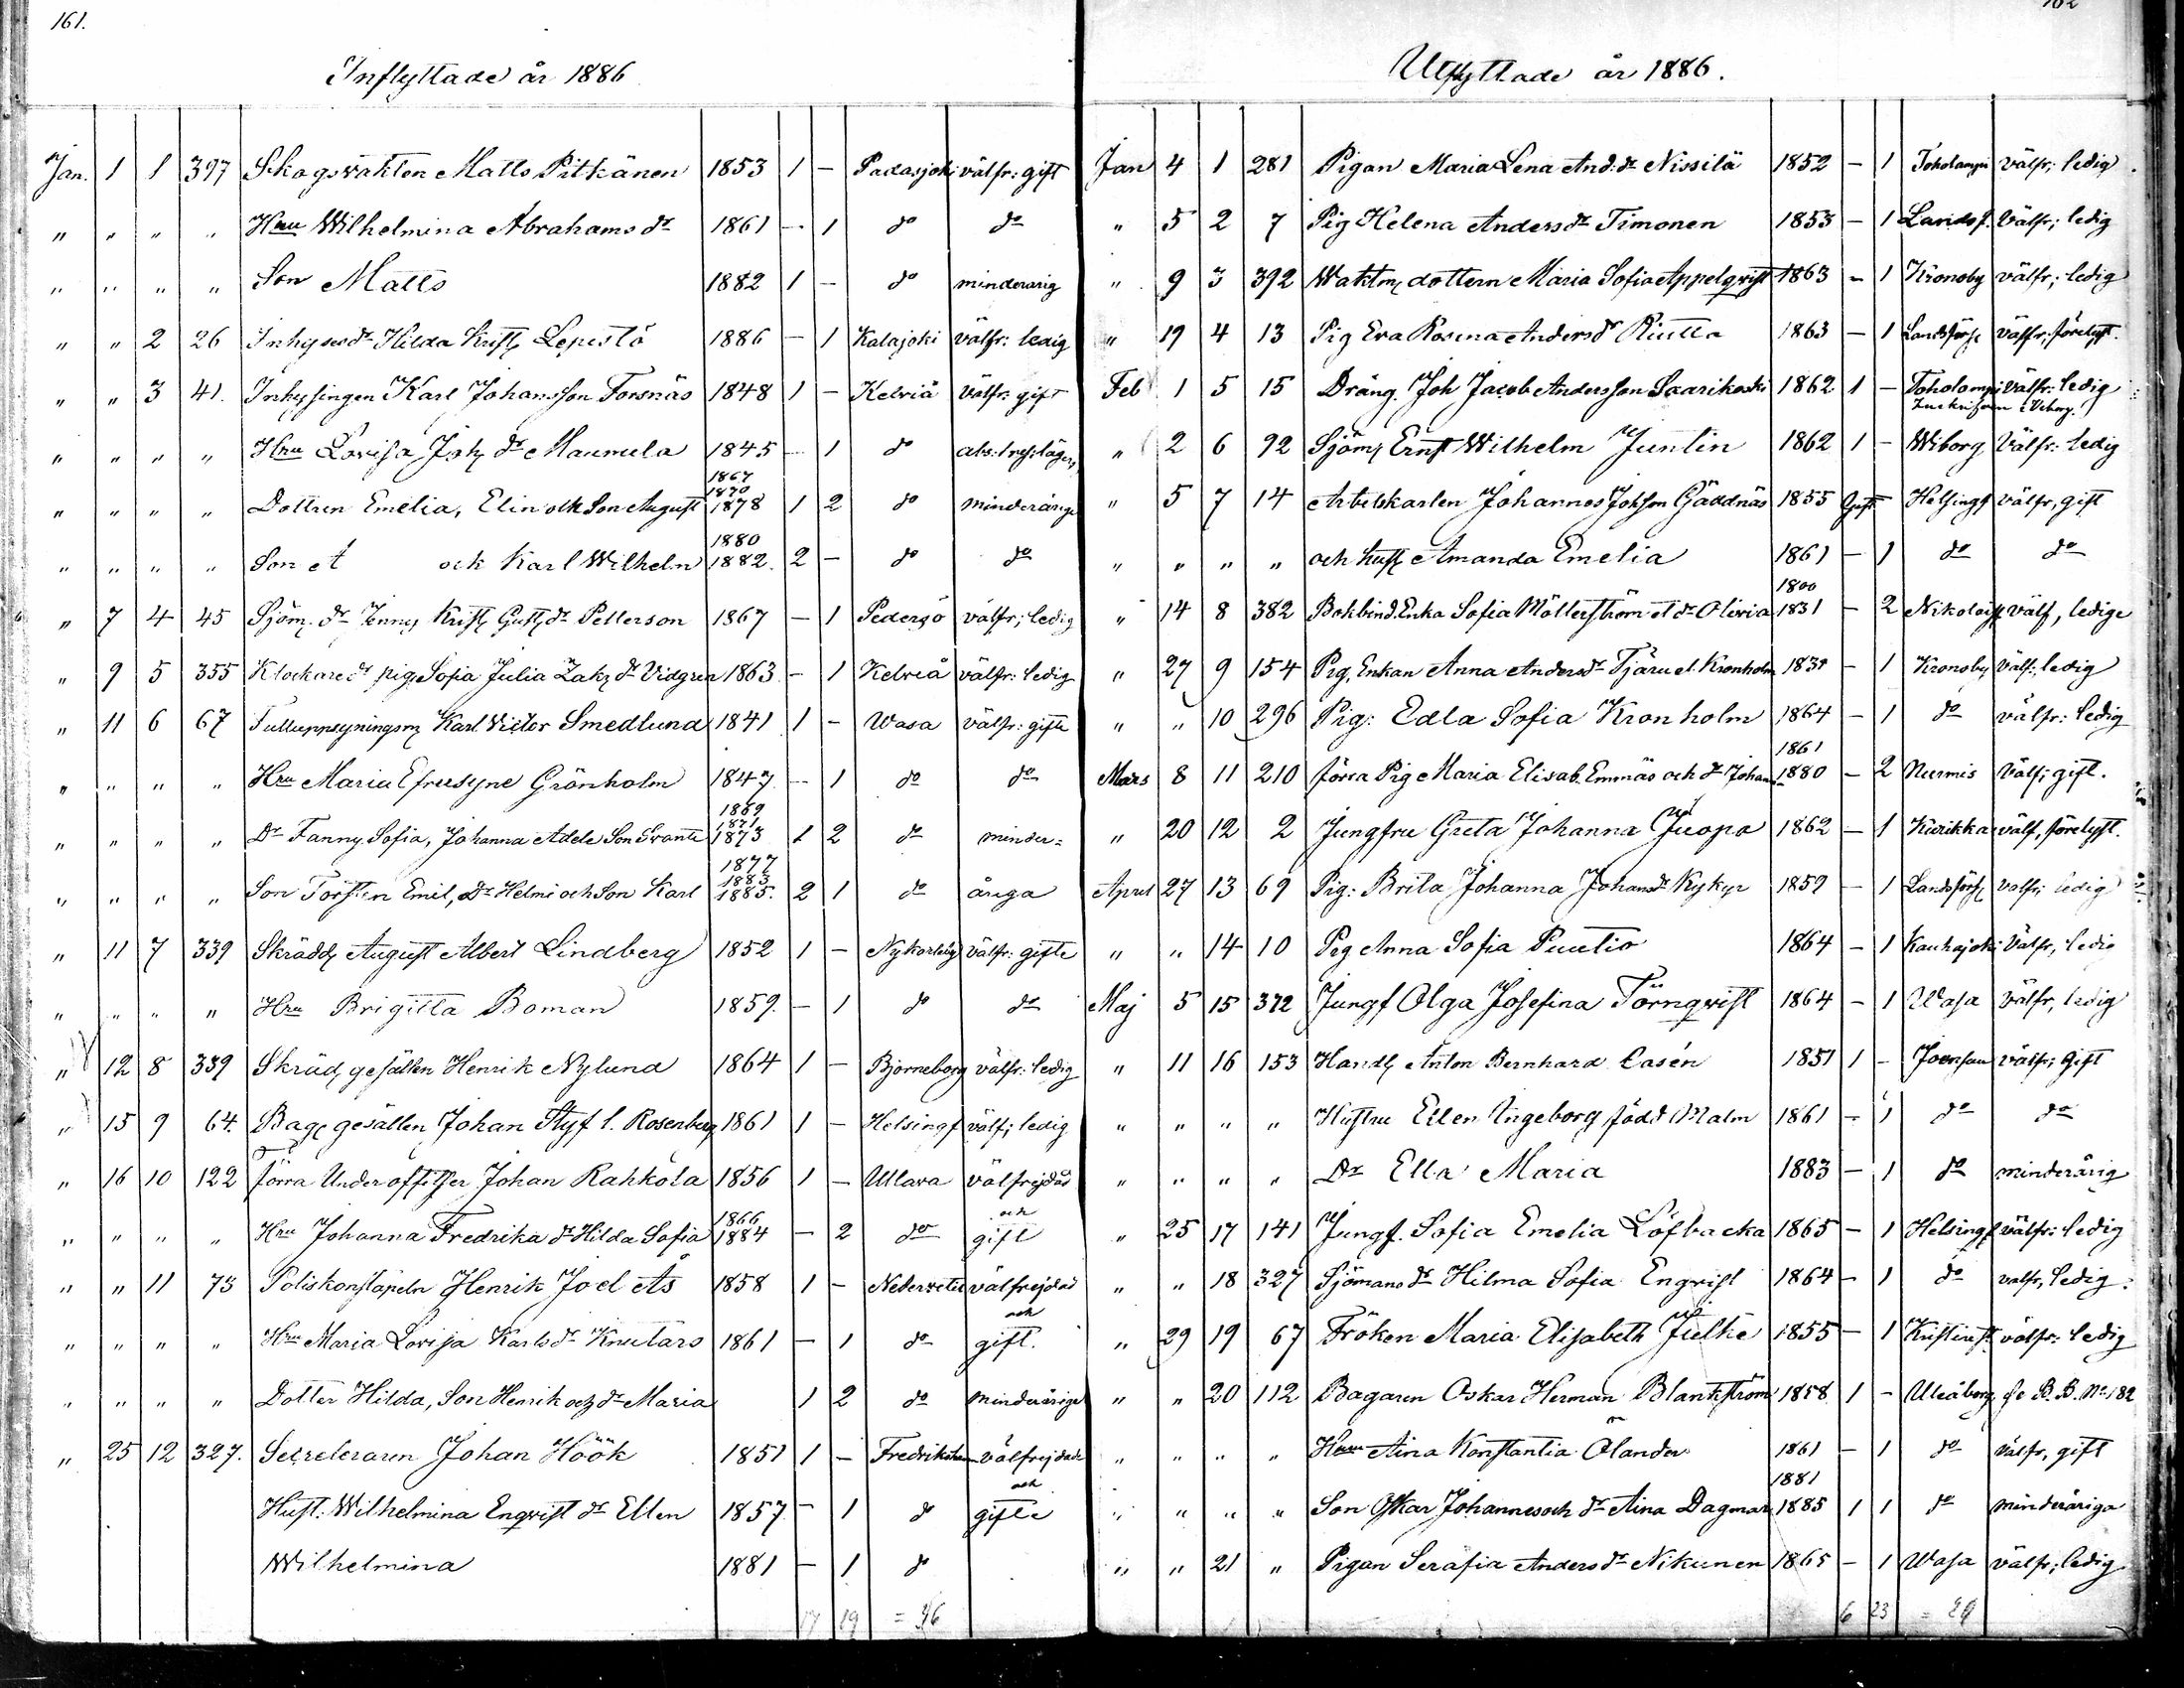 161.
Inflyttade år 1886
Jan. 1 1 397 Skogsvakten Matts Pitkänen 1853 1 - Padasjoki välfr: gift
" " " " Hru Wilhelmina Abrahams dr 1861 - 1 do do
" " " " Son Matts 1882 1 - do minderårig
" " 2 26 Inhyses dr Hilda Lepistö 1886 - 1 Kalajoki välfr: ledig
" " 3 41. Inhysingen Karl Johansson Forsnäs 1848 1 - Kelviå välfr: gift
" " " " Hru Lovisa Joh dr Maunula 1845 - 1 do
1867
1870
" " " " Dottren Emelia, Elin och Son August 1878 1 2 do minderåriga
1880
" " " " Son A och Karl Wilhelm 1882. 2 - do do
" 7 4 45 Sjöm. dr Jenny Gust dr Petterson 1867 - 1 Pedersö välfr; ledig
" 9 5 355 Klockare dr pig Sofia Julia Zak dr Vidgren 1863 - 1 Kelviå välfr: ledig
" 11 6 67 Karl Victor Smedlund 1841 1 - Wasa välfr: gifte
" " " " Hru Maria Efrusyne Grönholm 1847 - 1 do do
1869
1871
" " " " Dr Fanny Sofia, Johanna Adele Son Svante 1873 1 2 do minder=
1877
1883
" " " " Son Torsten Emil, Dr Helmi och Son Karl 1885. 2 1 do åriga
" 11 7 339 Skrädd August Albert Lindberg 1852 1 - Nykarleby välfr: gifte
" " " " Hru Brigitta Boman 1859. - 1 do do
" 12 8 339 Skräd gesällen Henrik Nylund 1864 1 - Björneborg välfr: ledig
" 15 9 64. Bag gesällen Johan Styf l. Rosenberg 1861 1 - Helsingf välf; ledig
" 16 10 122 förra Underofficer Johan Rahkola 1856 1 - Ullava välfrejdad
1866 och
" " " " Hru Johanna Fredrika dr Hilda Sofia 1884 - 2 do gift
" " 11 73 Poliskonstapeln Henrik Joel Ås 1858 1 - Nedervetil välfrejdad
och
" " " " Hru Maria Lovisa Karls dr Knutars 1861 - 1 do gift.
" " " " Dotter Hilda, Son Henrik och dr Maria 1 2 do minderåriga
" 25 12 327. Secreteraren Johan Höök 1851 1 - Fredrikshamn välfrejdade
och
Hust: Wilhelmina Enqvist dr Ellen 1857 - 1 do gifte
Wilhelmina 1881 - 1 do
17 19 = 36
162
Utflyttade år 1886.
Jan 4 1 281 Pigan Maria Lena And: dr Nissilä 1852 - 1 Toholampi välfr; ledig
" 5 2 7 Pig Helena Anders dr Timonen 1853 - 1 Landsf. välfr; ledig
" 9 3 392 Waktm dottern Maria Sofia Appelqvist 1863 - 1 Kronoby välfr; ledig
" 19 4 13 Pig Eva Rosina Anders dr Riutta 1863 - 1 Landsförs välfr; förelyst.
Feb 1 5 15 Dräng Joh Jacob Andersson Saarikoski 1862 1 - Toholampi välfr: ledig
i Viborg
" 2 6 92 Sjöm Ernst Wilhelm Juntin 1862 1 - Wiborg välfr: ledig
" 5 7 14 Arbetskarlen Johannes Johson Gäddnäs 1855 Gift Helsingf välfr, gift
" " " " och Amanda Emelia 1861 - 1 do do
1800
" 14 8 382 Bokbind. Enka Sofia Möllerström et dr Olivia 1831 - 2 Nikolaist välf, ledige
" 27 9 154 Pig, Enkan Anna Anders dr Tjäru el Kronholm 1831 - 1 Kronoby välf; ledig
" " 10 296 Pig: Edla Sofia Kronholm 1864 - 1 do välfr: ledig
1861
Mars 8 11 210 förra Pig Maria Elisab. Emmäs och dr Johan 1880 - 2 Nurmis välf; gift.
" 20 12 2 Jungfru Greta Johanna Juopa 1862 - 1 Kurikka välf, förelyst.
April 27 13 69 Pig: Brita Johanna Johans dr Kykyr 1859 - 1 Landsförs välfr; ledig
" " 14 10 Pig Anna Sofia Puutio 1864 - 1 Kauhajoki välfr, ledig
Maj 5 15 372 Jungf Olga Josefina Törnqvist 1864 - 1 Wasa välfr, ledig
" 11 16 153 Handl Anton Bernhard Casén 1851 1 - Joensuu välfr; gift
" " " " Hustru Ellen Ingeborg född Malm 1861 - 1 do do
" " " " Dr Ella Maria 1883 - 1 do minderårig
" 25 17 141 Jungf. Sofia Emelia Löfbacka 1865 - 1 Helsingf välfr: ledig
" " 18 327 Sjömans dr Hilma Sofia Enqvist 1864 - 1 do välfr, ledig.
" 29 19 67 Fröken Maria Elisabeth Julhe 1855 - 1 Kristinest. välfr: ledig
" " 20 112 Bagaren Oskar Herman Blankström 1858 1 - Uleåborg se B. B. No 182
" " " " Hru Aina Konstantia Ölander 1861 - 1 do välfr, gift
1881
" " " " Son Oskar Johannes och dr Aina Dagmar 1885 1 1 do minderåriga
" " 21 " Pigan Serafia Anders dr Nikunen 1865 - 1 Wasa välfr; ledig
6 23 = 29